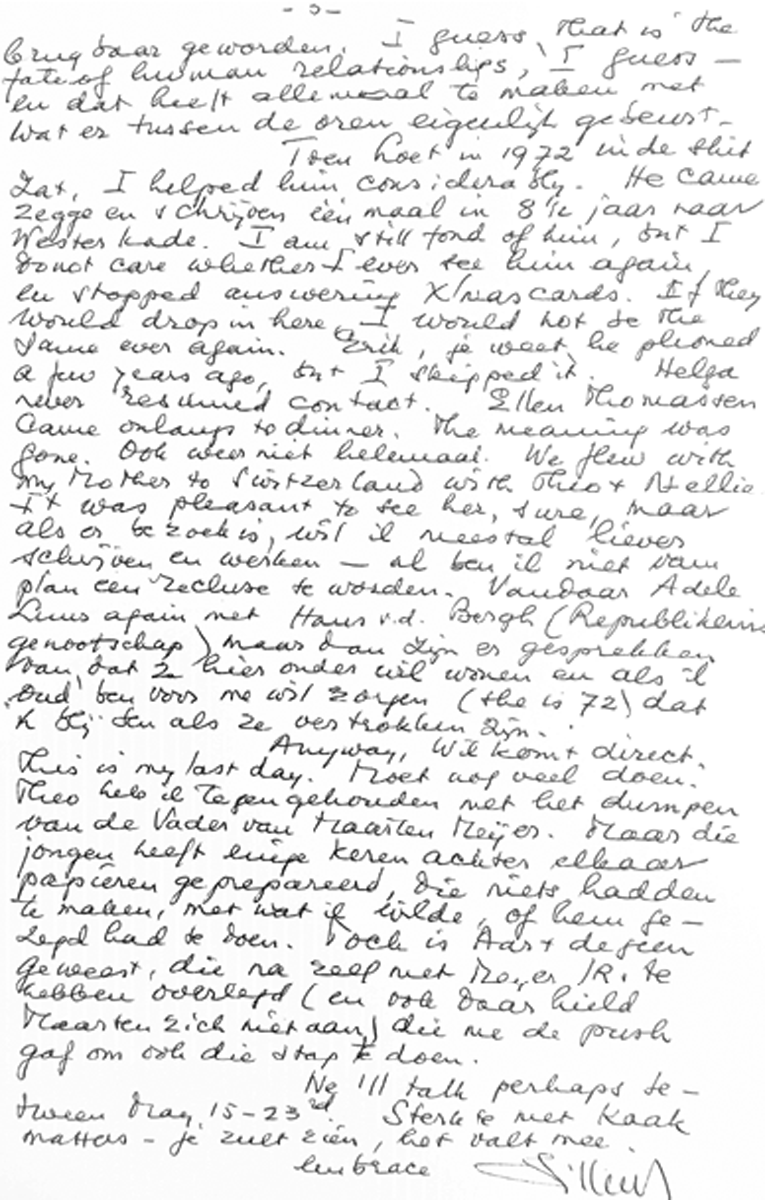 - 5 -
brugbaar geworden. I guess, that is the
fate of human relationships, I guess —
en dat heeft allemaal te maken met
wat er tussen de oren eigenlijk gebeurt.
Toen hoet in 1972 in de shit
zat, I helped him considerably. He came
zegge en schrijven één maal in 8 1/2 jaar naar
Westerkade. I am still fond of him, but I
do not care whether I ever see him again,
en stopped answering X'mas cards. If they
would drop in here, I would not be the
same ever again. Erik, je weet, he phoned
a few years ago, but I skipped it. Helga
never resumed contact. Ellen Thomassen
came onlangs to dinner. The meaning was
gone. Ook weer niet helemaal. We flew with
my Mother to Switzerland with Theo + Nellie.
It was pleasant to see her, sure, maar
als er bezoek is, wil ik meestal liever
schrijven en werken — al ben ik niet van
plan een recluse te worden. Vandaar Adele
again, met Hans v.d. Bergh (Republikeins
genootschap) maar dan zijn er gesprekken
van, dat ze hier onder wil wonen en als ik
oud ben voor me wil zorgen (she is 72) dat
ik blij ben als ze vertrokken zijn.
Anyway, Wil komt direct.
This is my last day. Moet nog veel doen.
Theo heb ik tegengehouden met het dumpen
van de Vader van Maarten Meijer. Maar die
jongen heeft enige keren achter elkaar
papieren geprepareerd, die niets hadden
te maken, met wat ik wilde, of hem ge-
zegd had te doen. Toch is Aart degeen
geweest, die na zelf met Meyer JR. te
hebben overlegd (en ook daar hield
Maarten zich niet aan) die me de push
gaf om ook die stap te doen.
We'll talk perhaps be-
tween May 15-23rd. Sterkte met Kaak
matters - je zult zien, het valt mee.
embrace Willem